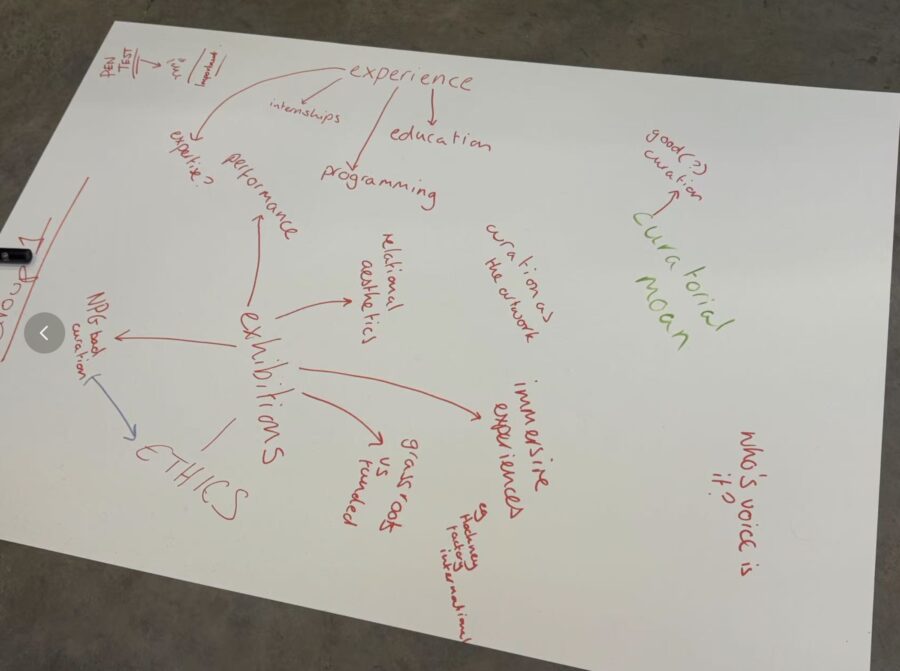 PEN
TEST
experience
internships
education
programming
expertise?
performance
good(?)
curation
curatorial
moan
relational
aesthetics
curation as
the artwork
exhibitions
NPG bad
curation
ETHICS
immersive
experiences
eg
Hockney
factory
international
grassroot
vs
funded
who's voice is
it?